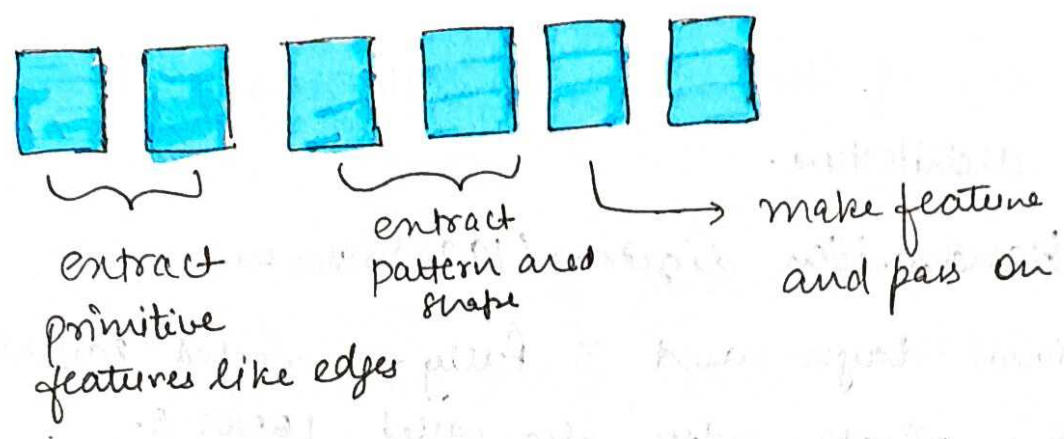 extract
primitive
features like edges
extract
pattern and
shape
make feature
and pass on